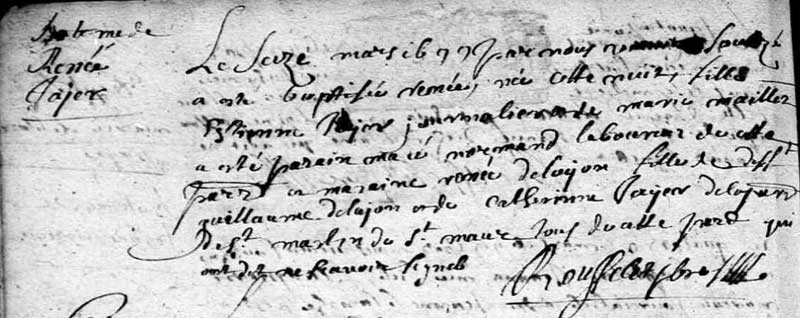 Batesme de
Renée
Tajer
Le Seze mars 1677 par nous soubz^né
a esté baptisée renée, née cette nuit, fille
Estienne Tajer journalier et de marie mailler
a esté parain macé normand laboureur de cette
parr^sse et maraine renée delajon fille de deff^t
guillaume delajon et de Catherine Tajer
de S^t martin de S^t maur tous de cette parr^sse qui
ont dit ne scavoir signer
Rousseler pbre